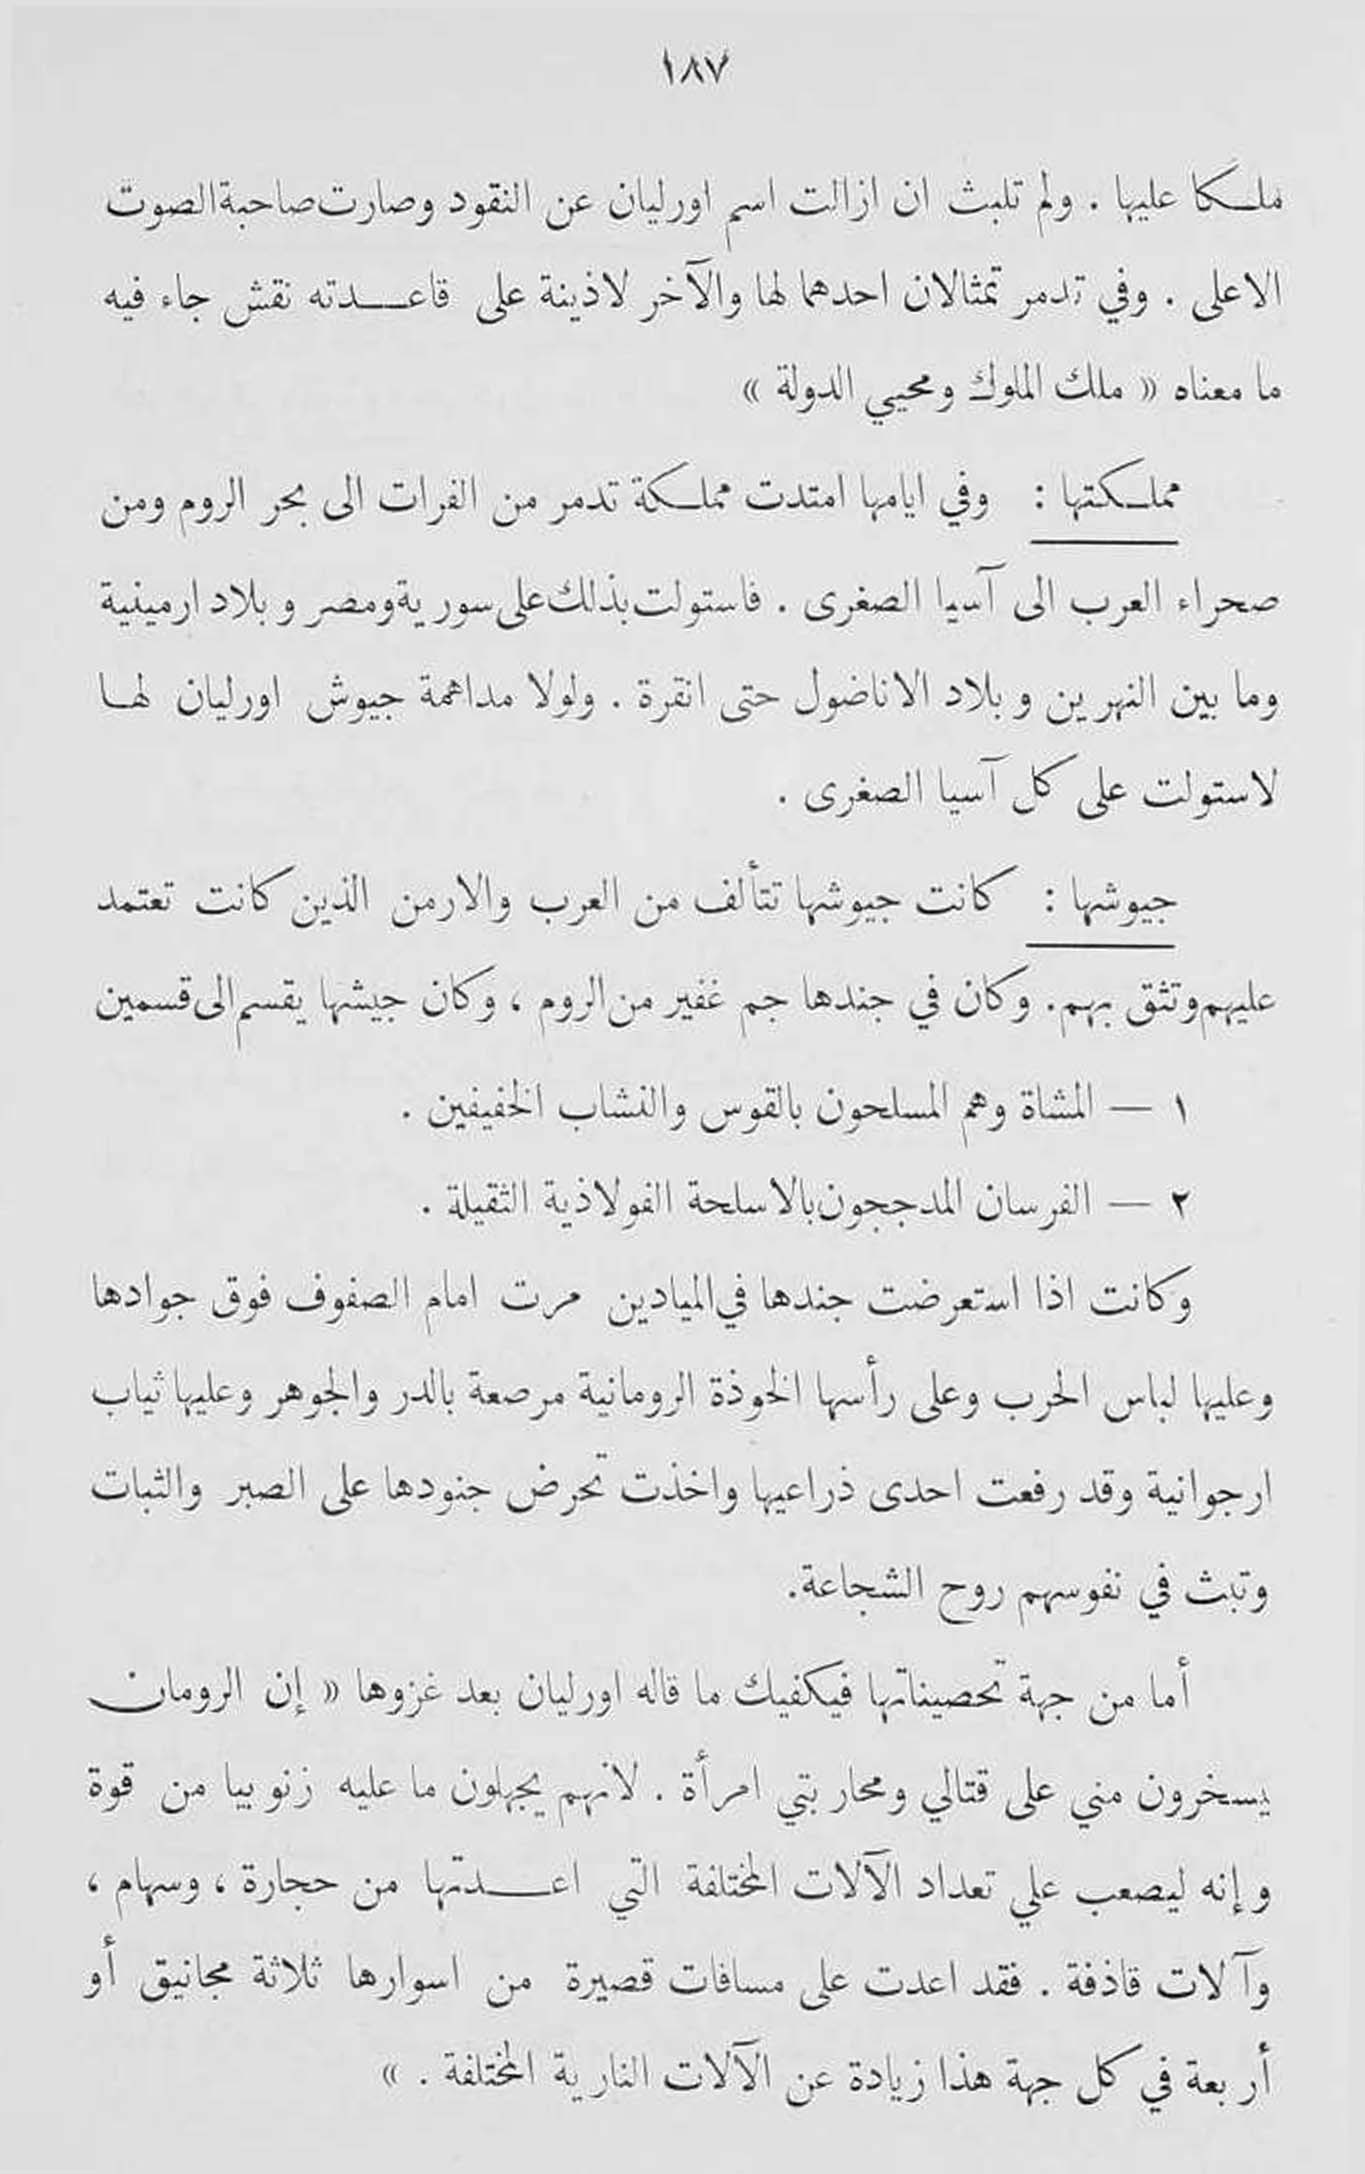 ١٨٧
ملكا عليها . ولم تلبث ان ازالت اسم اورليان عن النقود وصارت صاحبة الصوت
الاعلى . وفي تدمر تمثالان احدهما لها والآخر لاذينة على قاعدته نقش جاء فيه
ما معناه « ملك الملوك ومحيي الدولة »
مملكتها : وفي ايامها امتدت مملكة تدمر من الفرات الى بحر الروم ومن
صحراء العرب الى آسيا الصغرى . فاستولت بذلك على سورية ومصر وبلاد ارمينية
وما بين النهرين وبلاد الاناضول حتى انقرة . ولولا مداهمة جيوش اورليان لها
لاستولت على كل آسيا الصغرى .
جيوشها : كانت جيوشها تتألف من العرب والارمن الذين كانت تعتمد
عليهم وتثق بهم . وكان في جندها جم غفير من الروم ، وكان جيشها يقسم الى قسمين
١ — المشاة وهم المسلحون بالقوس والنشاب الخفيفين .
٢ — الفرسان المدججون بالاسلحة الفولاذية الثقيلة .
وكانت اذا استعرضت جندها في الميادين مرت امام الصفوف فوق جوادها
وعليها لباس الحرب وعلى رأسها الخوذة الرومانية مرصعة بالدر والجوهر وعليها ثياب
ارجوانية وقد رفعت احدى ذراعيها واخذت تحرض جنودها على الصبر والثبات
وتبث في نفوسهم روح الشجاعة.
أما من جهة تحصيناتها فيكفيك ما قاله اورليان بعد غزوها « إن الرومان
يسخرون مني على قتالي ومحاربتي امرأة . لانهم يجهلون ما عليه زنوبيا من قوة
وإنه ليصعب علي تعداد الآلات المختلفة التي اعدتها من حجارة ، وسهام ،
وآلات قاذفة . فقد اعدت على مسافات قصيرة من اسوارها ثلاثة مجانيق أو
أربعة في كل جهة هذا زيادة عن الآلات النارية المختلفة . »